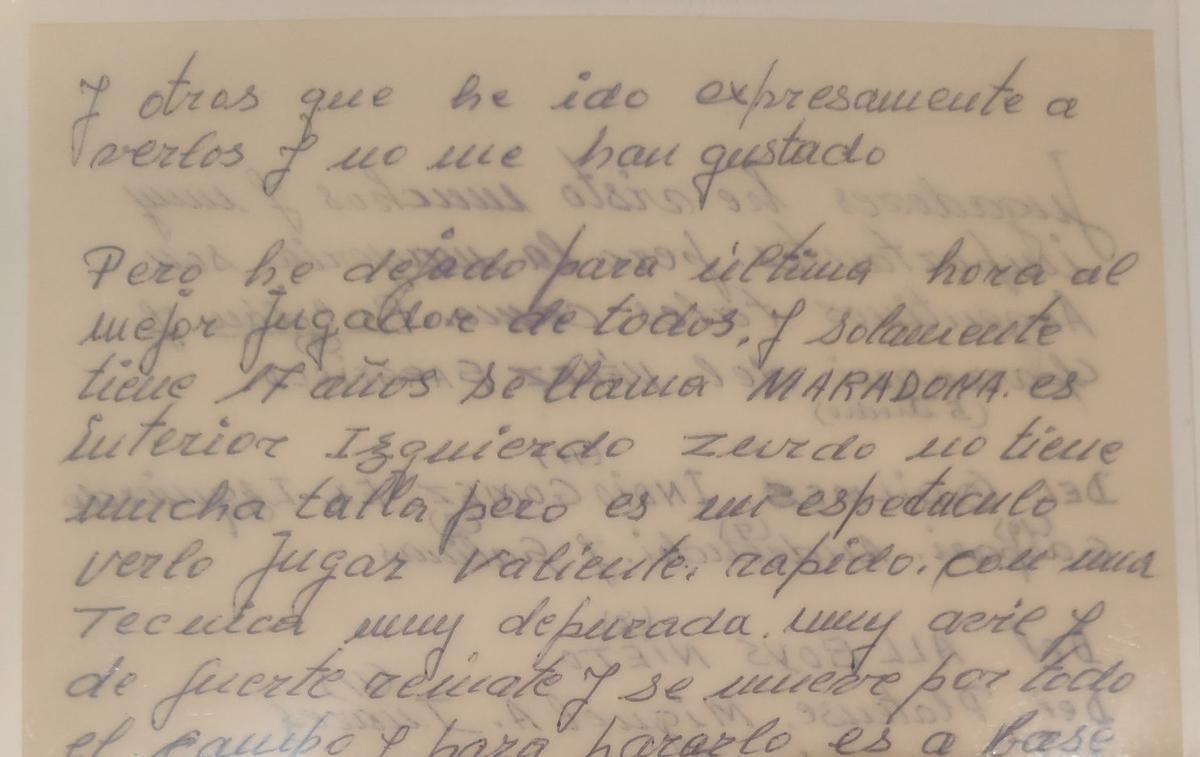 Y otros que he ido expresamente a
verlos Y no me han gustado
Pero he dejado para última hora al
mejor Jugador de todos, Y solamente
tiene 17 años se llama MARADONA. es
Interior Izquierdo zurdo no tiene
mucha talla pero es un espetaculo
verlo Jugar valiente, rapido, con una
Tecnica muy depurada. muy avil Y
de fuerte remate Y se mueve por todo
el campo Y para pararlo es a base